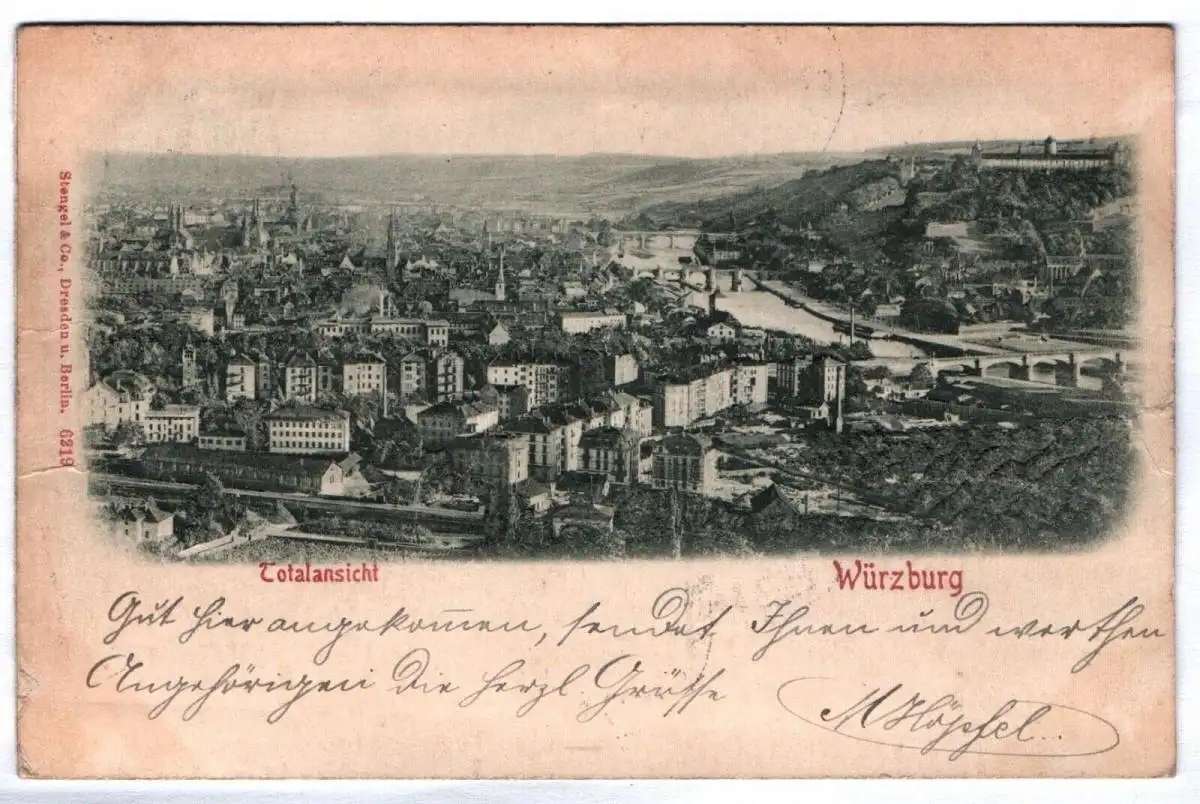 Stengel & Co., Dresden u. Berlin. 6219
Totalansicht
Würzburg
Gut hier angekom̅en, sendet Ihnen und werthen
Angehörigen die herzl. Grüsse
M Höpfel..